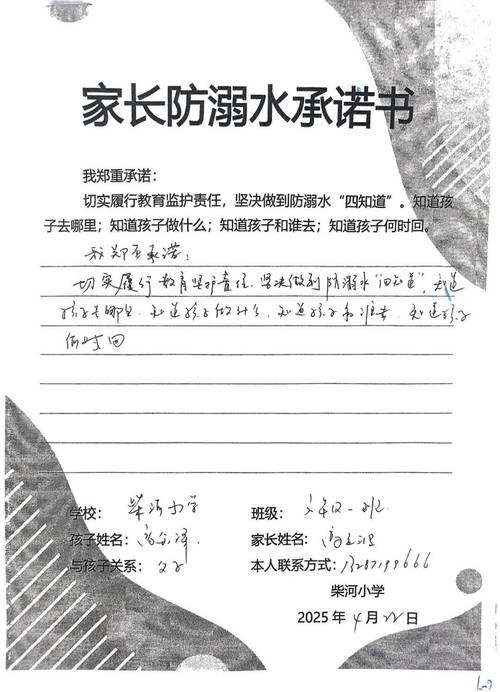 家长防溺水承诺书
我郑重承诺：
切实履行教育监护责任，坚决做到防溺水“四知道”。知道孩
子去哪里；知道孩子做什么；知道孩子和谁去；知道孩子何时回。
我郑重承诺：
切实履行教育监护责任，坚决做到防溺水“四知道”，知道
孩子去哪里，知道孩子做什么，知道孩子和谁去，知道孩子
何时回
学校：柴河小学 班级：六年级一班
孩子姓名：高 家长姓名：高
与孩子关系：父子 本人联系方式：
柴河小学
2025年4月22日